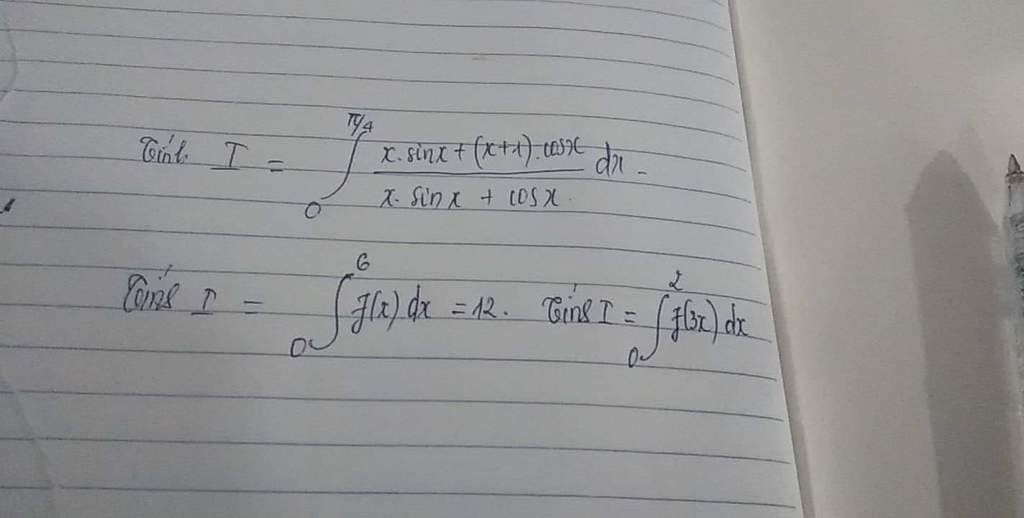 Tính I = ∫₀^{π/4} \frac{x.sinx + (x+1).cosx}{x.sinx + cosx} dx.
Tính I = ∫₀^6 f(x) dx = 12. Tính I = ∫₀^2 f(3x) dx